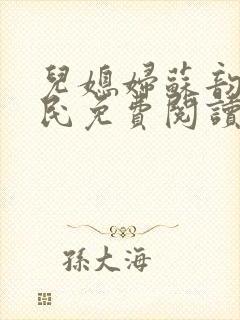 兒媳婦蘇韵
民免費閱讀
孫大海